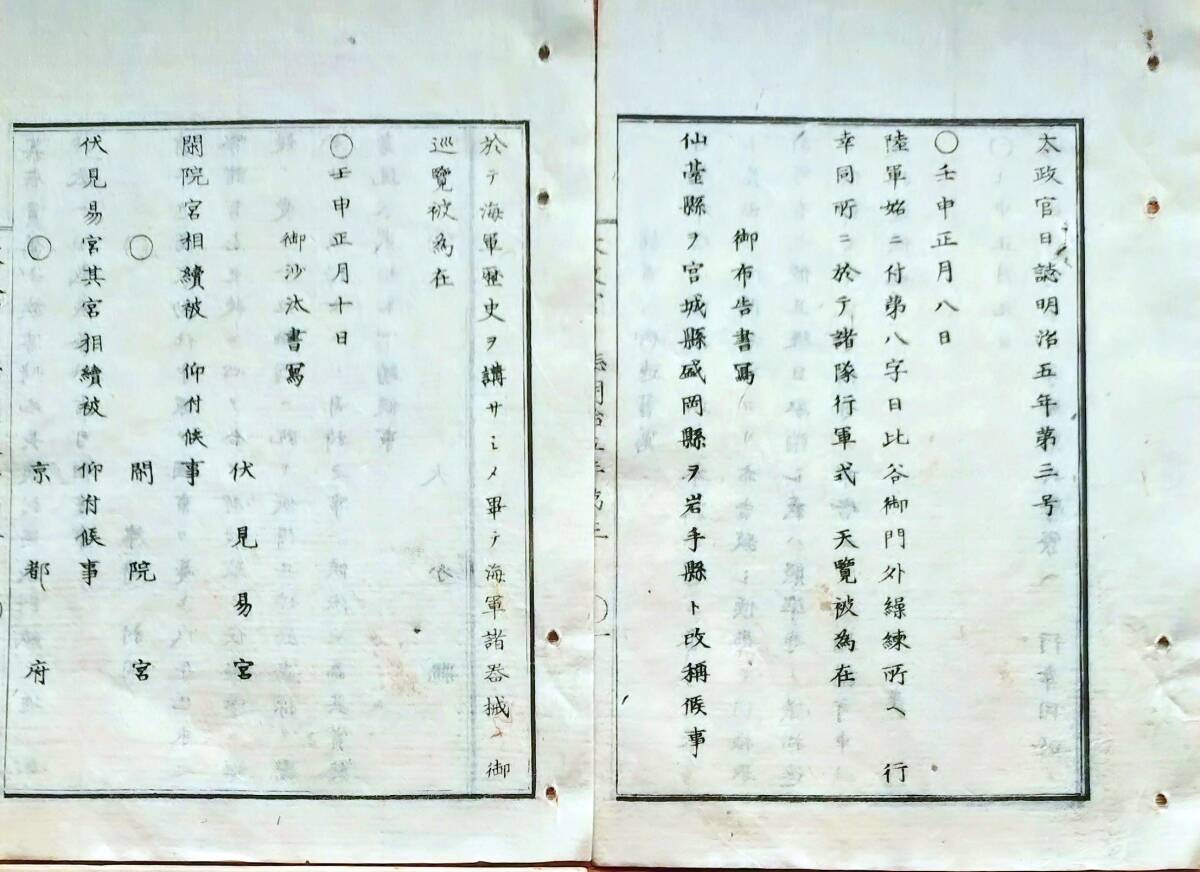 太政官日誌明治五年第三号
〇壬申正月八日
陸軍始ニ付第八字日比谷御門外繰練所ヘ 行
幸同所ニ於テ諸隊行軍式 天覧被為在
御布告書寫
仙䑓縣ヲ宮城縣盛岡縣ヲ岩手縣ト改稱候事
於テ海軍歴史ヲ講サシメ畢テ海軍諸器械 御
巡覽被為在
〇壬申正月十日
御沙汰書寫
伏見易宮
閑院宮相續被 仰付候事
〇 閑院宮
伏見易宮其宮相續被 仰付候事
〇 京都府